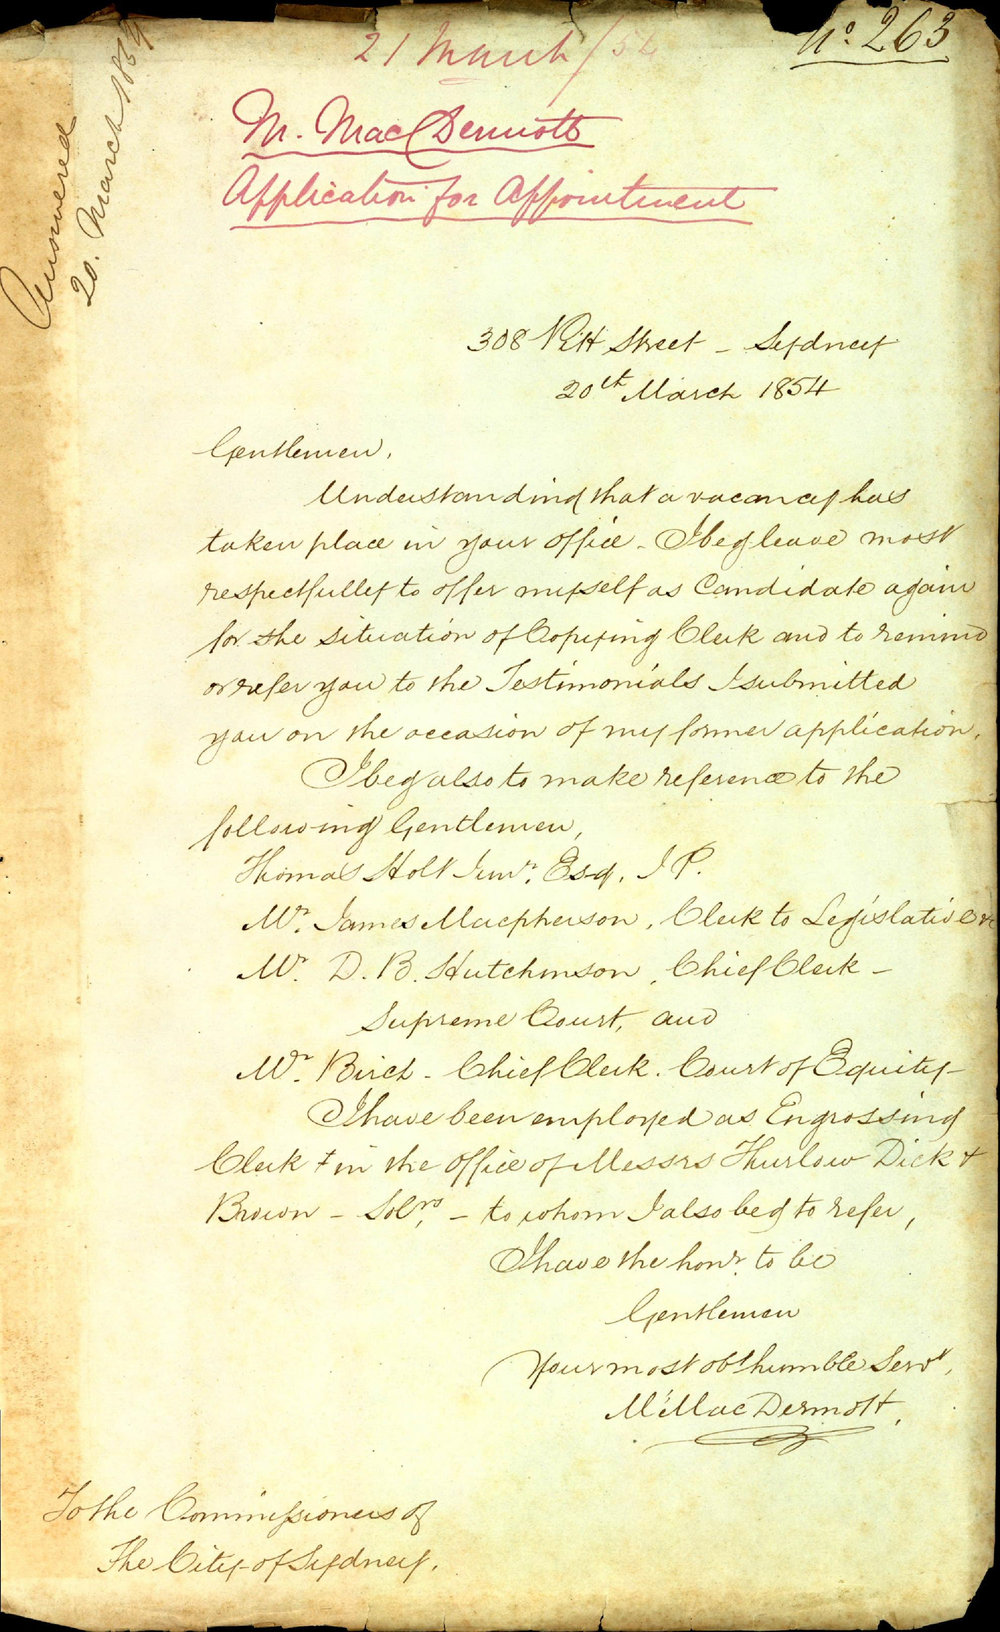 No. 263
21 March / 54
M. MacDermott
Application for Appointment
Answered
20. March 1854
308 Pitt Street - Sydney
20th March 1854
Gentlemen,
Understanding that a vacancy has
taken place in your office - I beg leave most
respectfully to offer myself as Candidate again
for the situation of Copying Clerk and to remind
or refer you to the Testimonials I submitted
you on the occasion of my former application,
I beg also to make reference to the
following Gentlemen,
Thomas Holt Junr. Esq. J P.
Mr. James Macpherson, Clerk to Legislative
Mr. D. B. Hutchinson, Chief Clerk -
Supreme Court, and
Mr. Birch - Chief Clerk. Court of Equity -
I have been employed as Engrossing
Clerk + in the office of Messrs Thurlow Dick +
Brown - Solrs, - to whom I also beg to refer,
I have the honr. to be
Gentlemen
Your most obt humble Servt,
M. MacDermott.
To the Commissioners of
The City of Sydney.